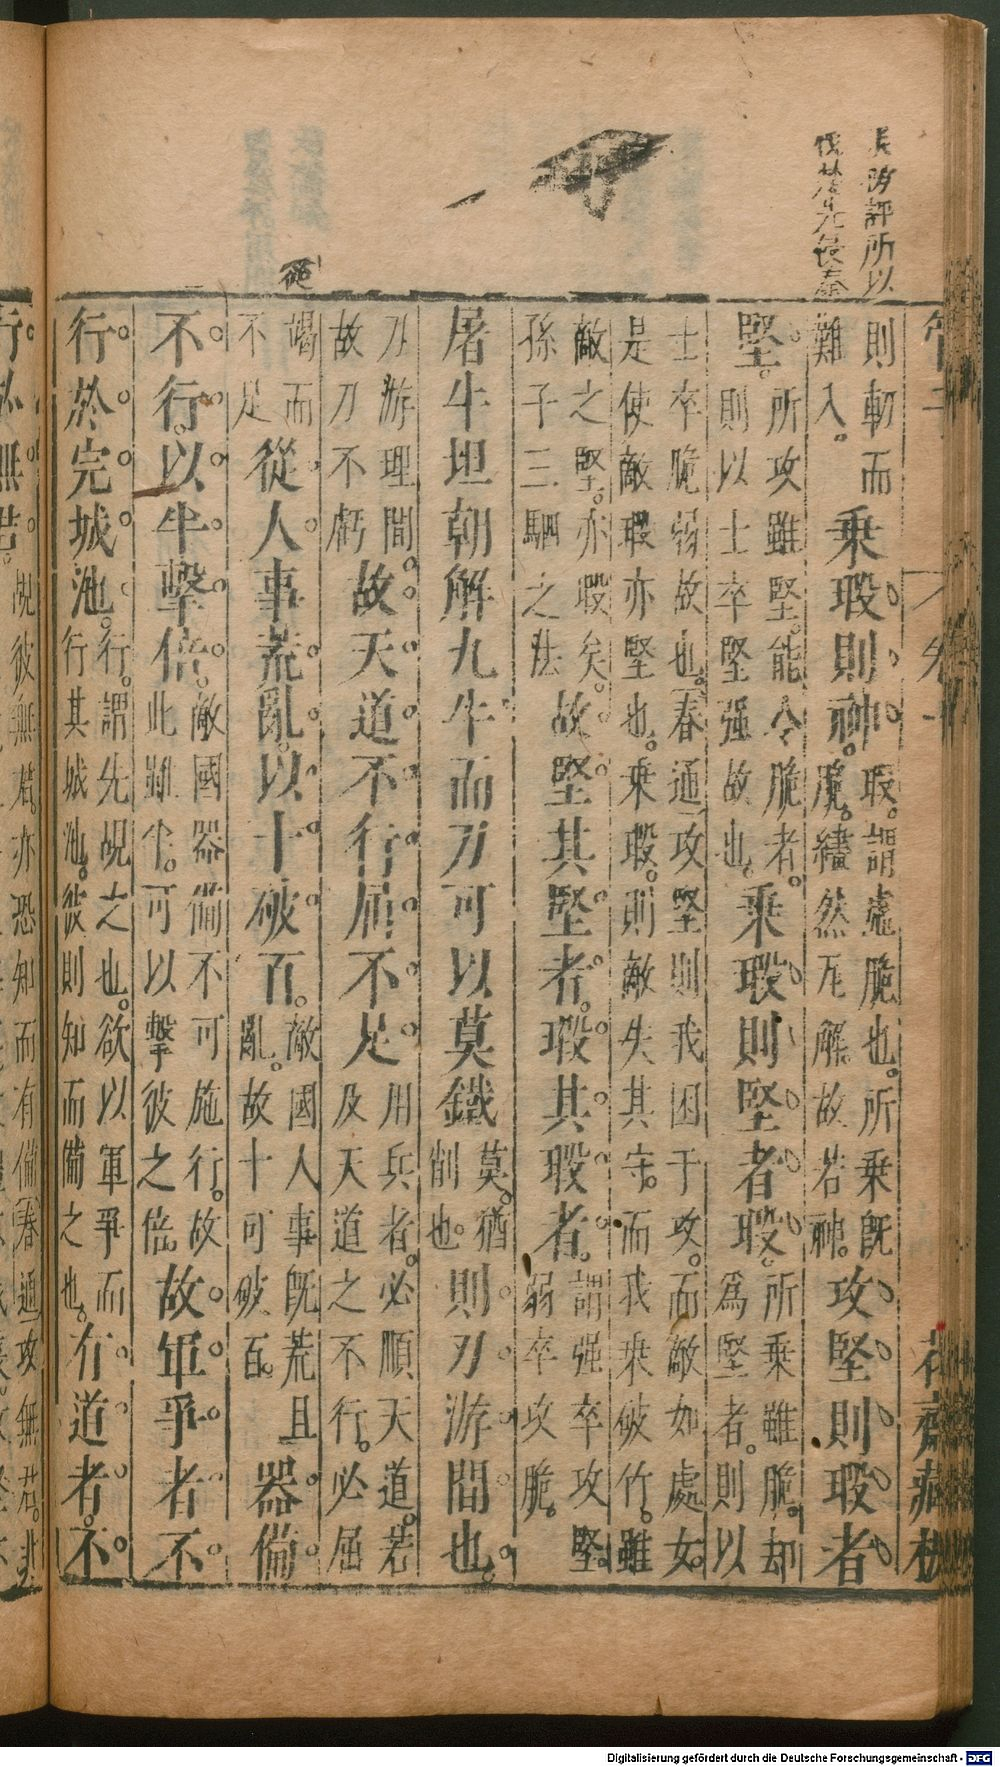 長攷評所以
伐楚先侵
管子
花齋藏板
則軔而難入。乘瑕則神。瑕。謂虛脆也。所乗旣脆。繣然瓦解故若神。攻堅則瑕者
堅。所攻雖堅。能令脆者。則以士卒堅强故也。乘瑕則堅者瑕。所乗雖脆。却爲堅者。則以
士卒脆弱故也。春通攻堅則我困于攻。而敵如處女。是使敵瑕亦堅也。乗瑕。則敵失其守。而我乗破竹。雖
敵之堅。亦瑕矣。孫子三駟之法故。堅其堅者。瑕其瑕者。謂强卒攻堅。弱卒攻脆。
屠牛坦朝解九牛而刀可以莫鐵莫。猶削也。則刃游間也。
刀游理間故刀不虧故天道不行屈不足用兵者。必順天道。若及天道之不行。必屈
竭而不足從人事荒亂。以十破百。敵國人事旣荒且亂。故十可破百。器備
不行。以半擊倍。敵國器備不可施行。故此雖少。可以擊彼之倍。故軍爭者不
行於完城池。行。謂先覘之也。欲以軍爭而行其城池。彼則知而備之也。有道者。不
行於無君。覘彼無君。亦恐知而有備春通攻無君。非
從
Digitalisierung gefördert durch die Deutsche Forschungsgemeinschaft - DFG